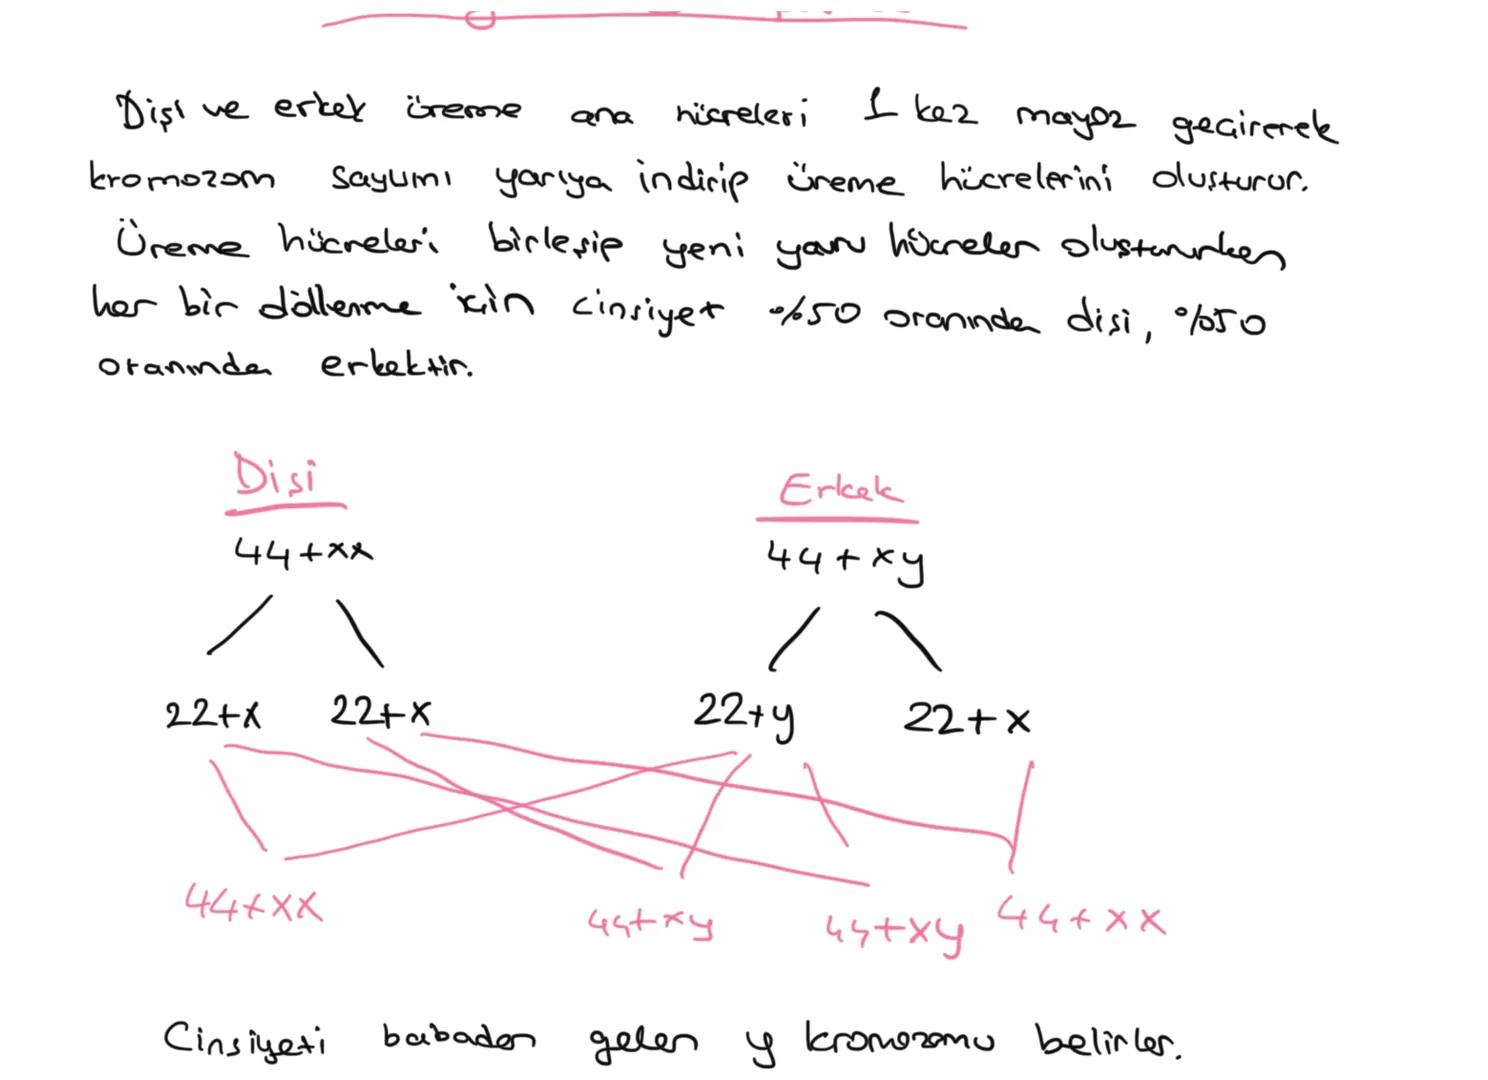 Dişi ve erkek üreme ana hücreleri 1 kez mayoz geçirerek
kromozom sayısını yarıya indirip üreme hücrelerini oluşturur.
Üreme hücreleri birleşip yeni yavru hücreler oluştururken
her bir döllenme için cinsiyet %50 oranında dişi, %50
oranında erkektir.
Dişi Erkek
44+xx 44+xy
22+x 22+x 22+y 22+x
44+xx 44+xy 44+xy 44+xx
Cinsiyeti babadan gelen y kromozomu belirler.